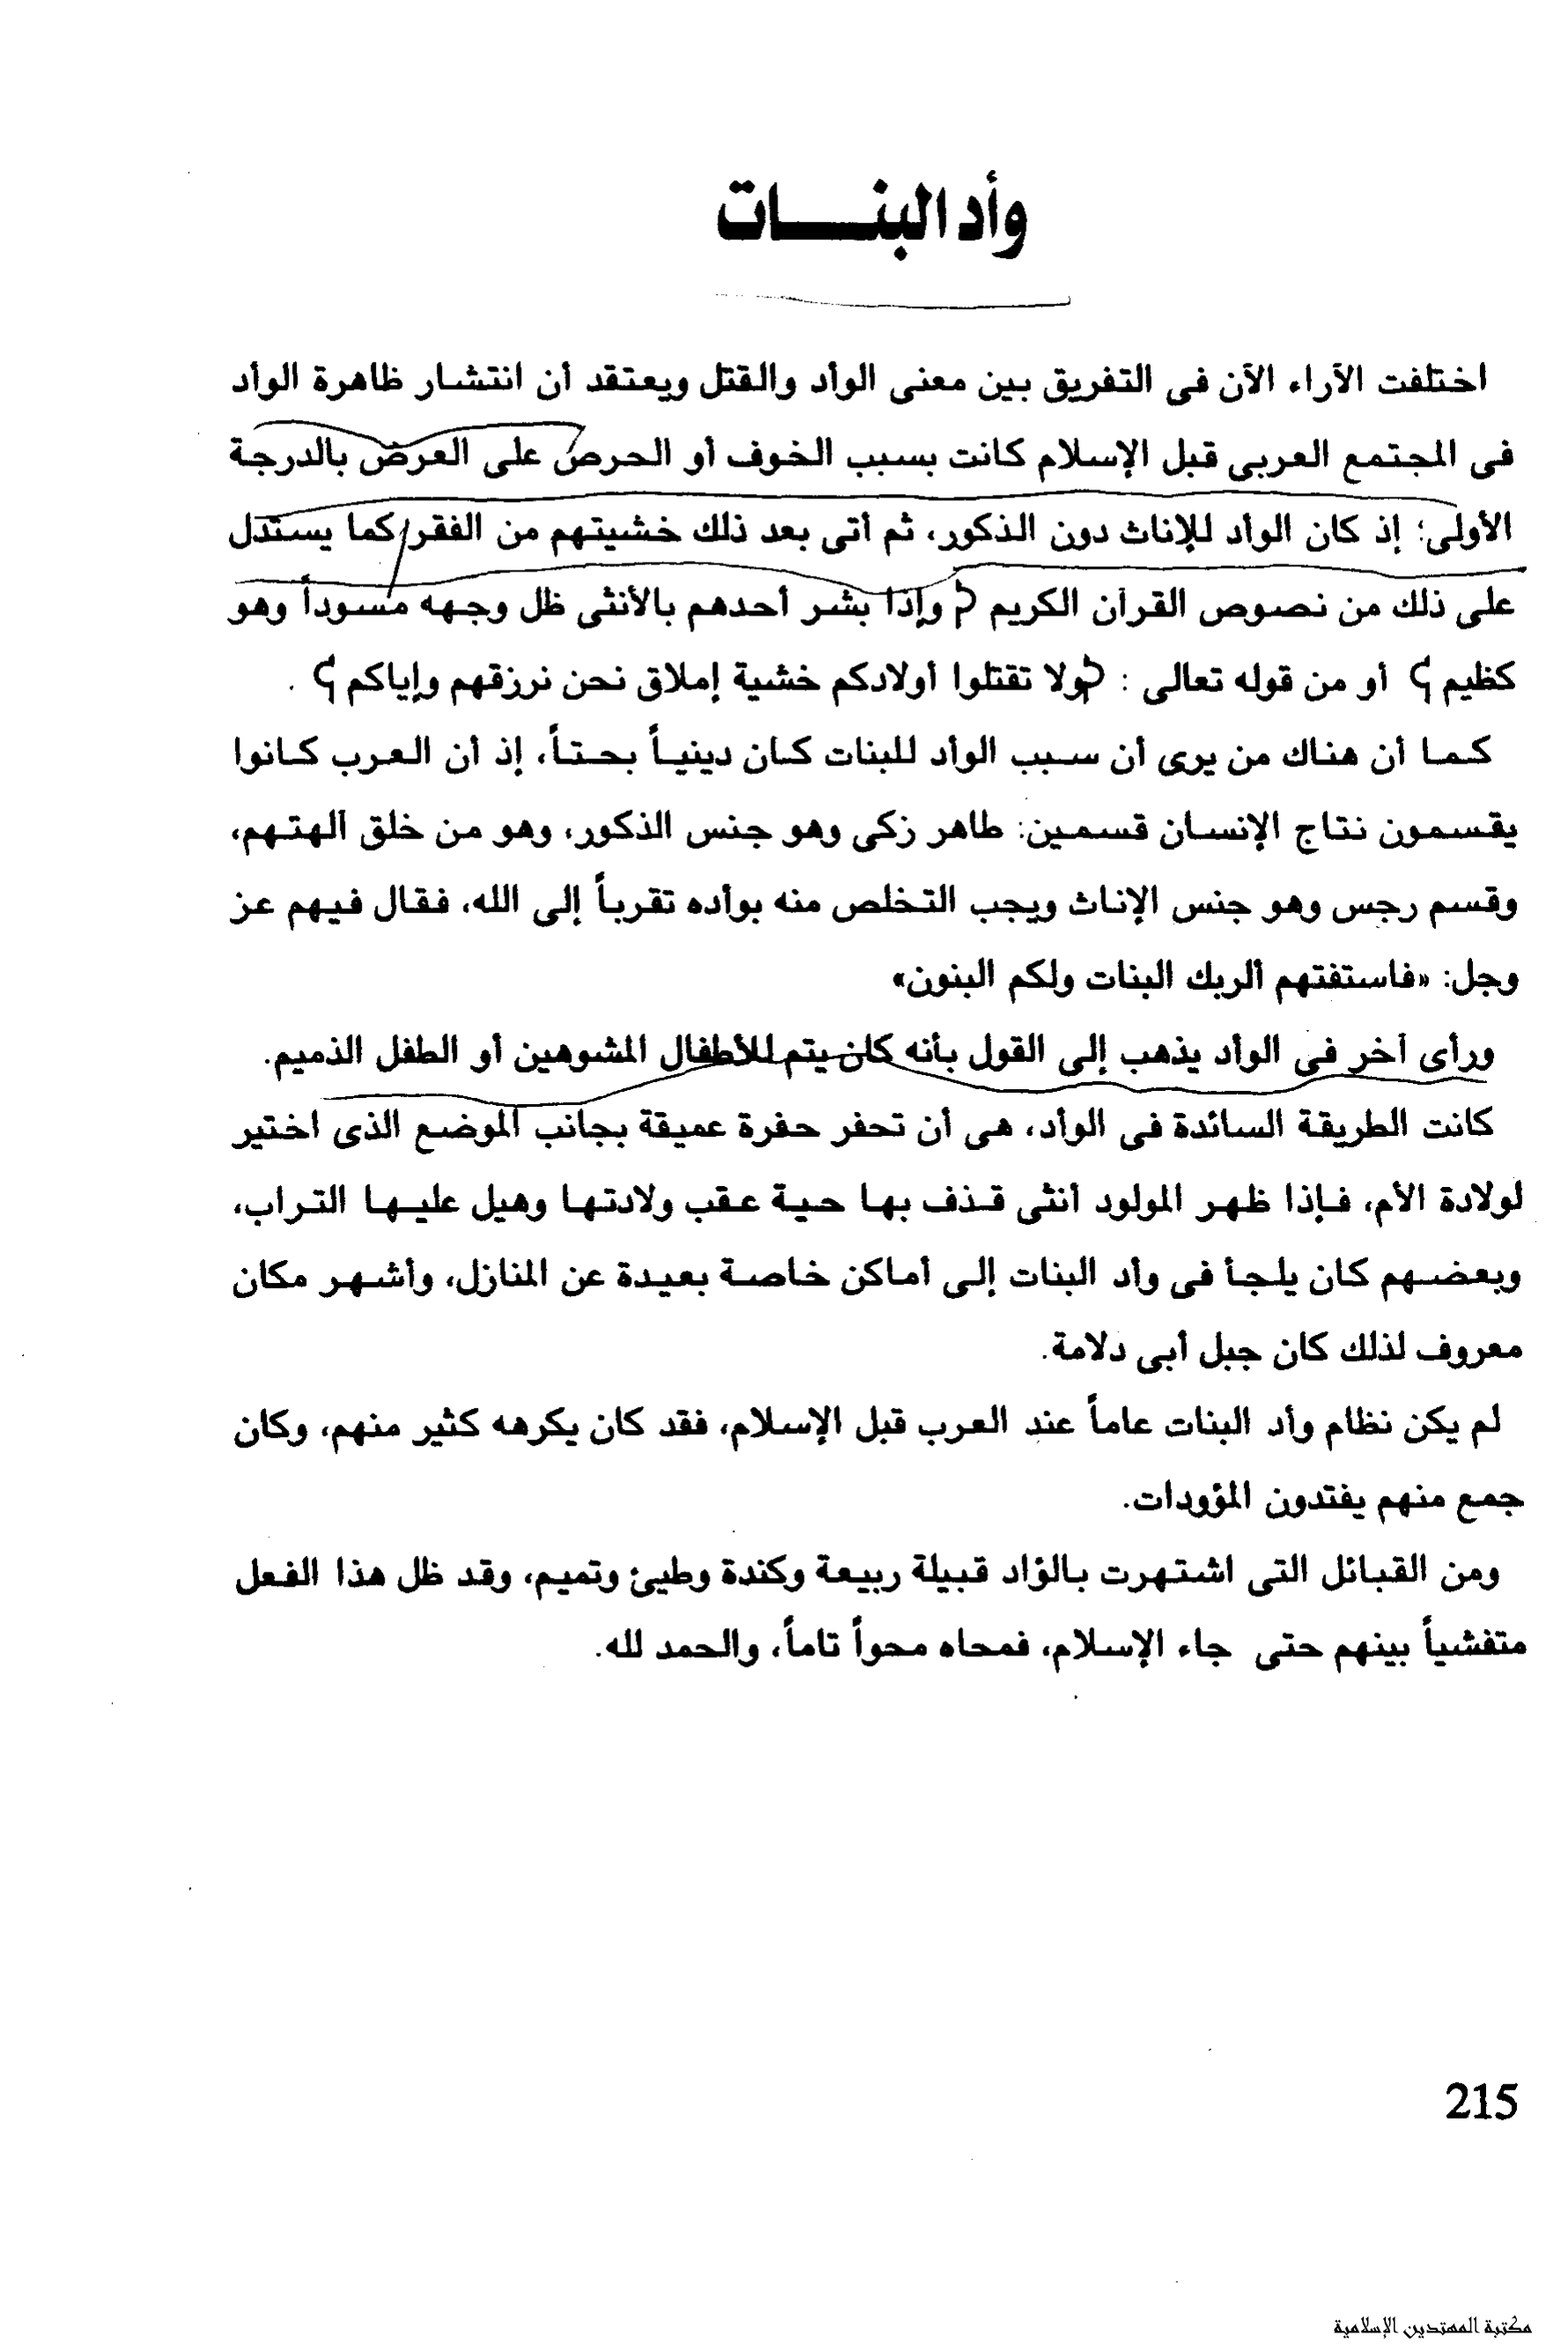 وأد البنـــات
اختلفت الآراء الآن فى التفريق بين معنى الوأد والقتل ويعتقد أن انتشار ظاهرة الوأد
فى المجتمع العربى قبل الإسلام كانت بسبب الخوف أو الحرص على العرض بالدرجة
الأولى؛ إذ كان الوأد للإناث دون الذكور، ثم أتى بعد ذلك خشيتهم من الفقر/كما يستدل
على ذلك من نصوص القرآن الكريم ﴿ وإذا بشر أحدهم بالأنثى ظل وجهه مسوداً وهو
كظيم﴾ أو من قوله تعالى : ﴿ولا تقتلوا أولادكم خشية إملاق نحن نرزقهم وإياكم﴾ .
كما أن هناك من يرى أن سبب الوأد للبنات كان دينياً بحتاً، إذ أن العرب كانوا
يقسمون نتاج الإنسان قسمين: طاهر زكى وهو جنس الذكور، وهو من خلق آلهتهم،
وقسم رجس وهو جنس الإناث ويجب التخلص منه بوأده تقرباً إلى الله، فقال فيهم عز
وجل: «فاستفتهم ألربك البنات ولكم البنون»
ورأى آخر فى الوأد يذهب إلى القول بأنه كان يتم للأطفال المشوهين أو الطفل الذميم.
كانت الطريقة السائدة فى الوأد، هى أن تحفر حفرة عميقة بجانب الموضع الذى اختير
لولادة الأم، فإذا ظهر المولود أنثى قذف بها حية عقب ولادتها وهيل عليها التراب،
وبعضهم كان يلجأ فى وأد البنات إلى أماكن خاصة بعيدة عن المنازل، وأشهر مكان
معروف لذلك كان جبل أبى دلامة.
لم يكن نظام وأد البنات عاماً عند العرب قبل الإسلام، فقد كان يكرهه كثير منهم، وكان
جمع منهم يفتدون المؤودات.
ومن القبائل التى اشتهرت بالؤاد قبيلة ربيعة وكندة وطيئ وتميم، وقد ظل هذا الفعل
متفشياً بينهم حتى جاء الإسلام، فمحاه محواً تاماً، والحمد لله.
215
مكتبة المهتدين الإسلامية